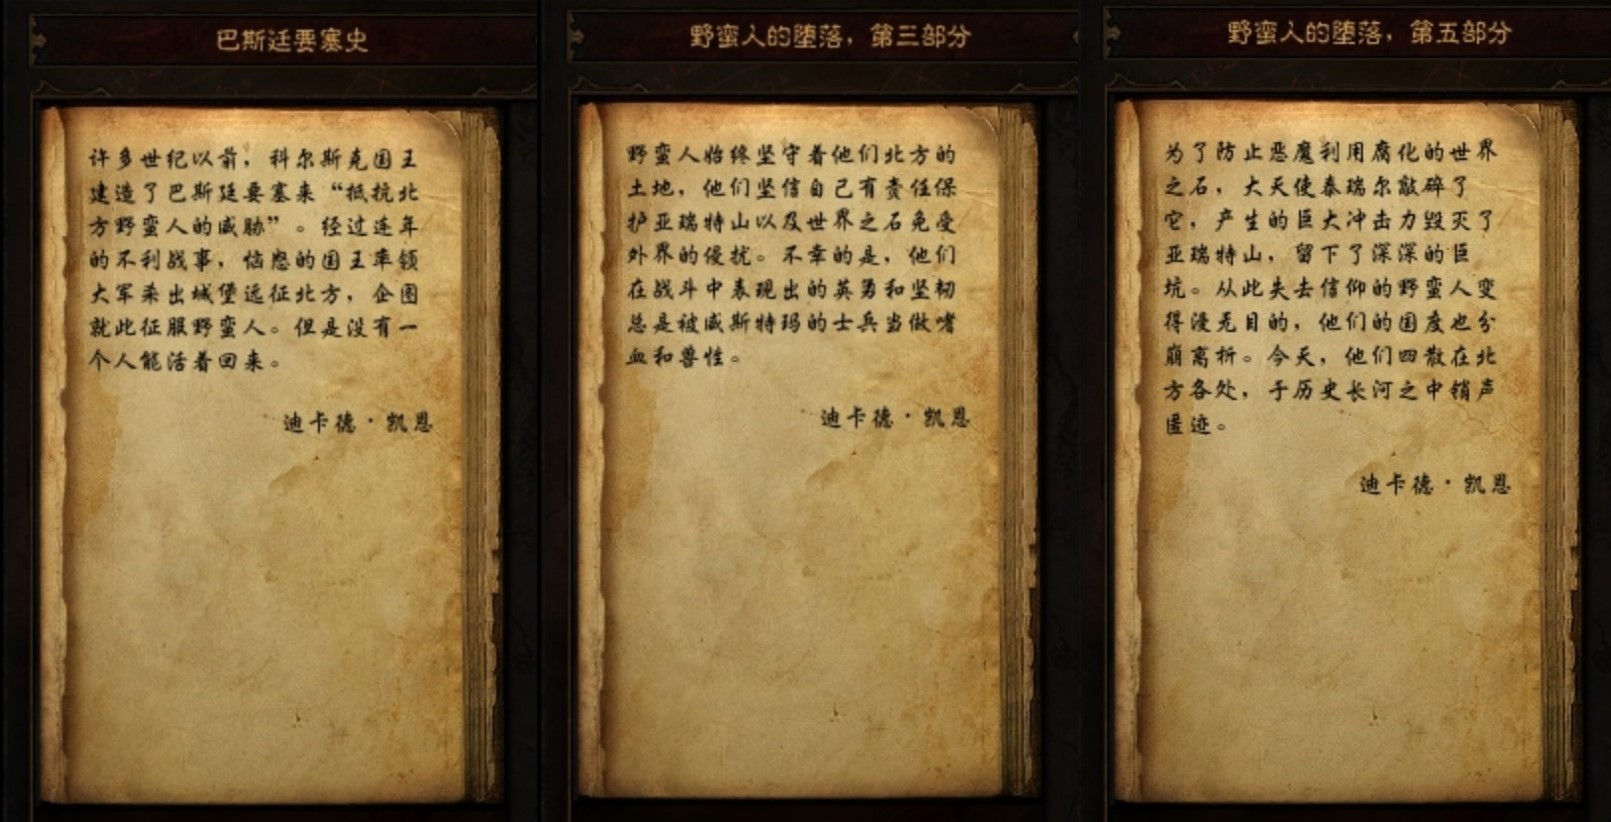 巴斯廷要塞史
许多世纪以前，科尔斯克国王
建造了巴斯廷要塞来“抵抗北
方野蛮人的威胁”。经过连年
的不利战事，恼怒的国王率领
大军杀出城堡远征北方，企图
就此征服野蛮人。但是没有一
个人能活着回来。
迪卡德·凯恩
野蛮人的堕落，第三部分
野蛮人始终坚守着他们北方的
土地，他们坚信自己有责任保
护亚瑞特山以及世界之石免受
外界的侵扰。不幸的是，他们
在战斗中表现出的英勇和坚韧
总是被威斯特玛的士兵当做嗜
血和兽性。
迪卡德·凯恩
野蛮人的堕落，第五部分
为了防止恶魔利用腐化的世界
之石，大天使泰瑞尔敲碎了
它，产生的巨大冲击力毁灭了
亚瑞特山，留下了深深的巨
坑。从此失去信仰的野蛮人变
得漫无目的，他们的国度也分
崩离析。今天，他们四散在北
方各处，于历史长河之中销声
匿迹。
迪卡德·凯恩